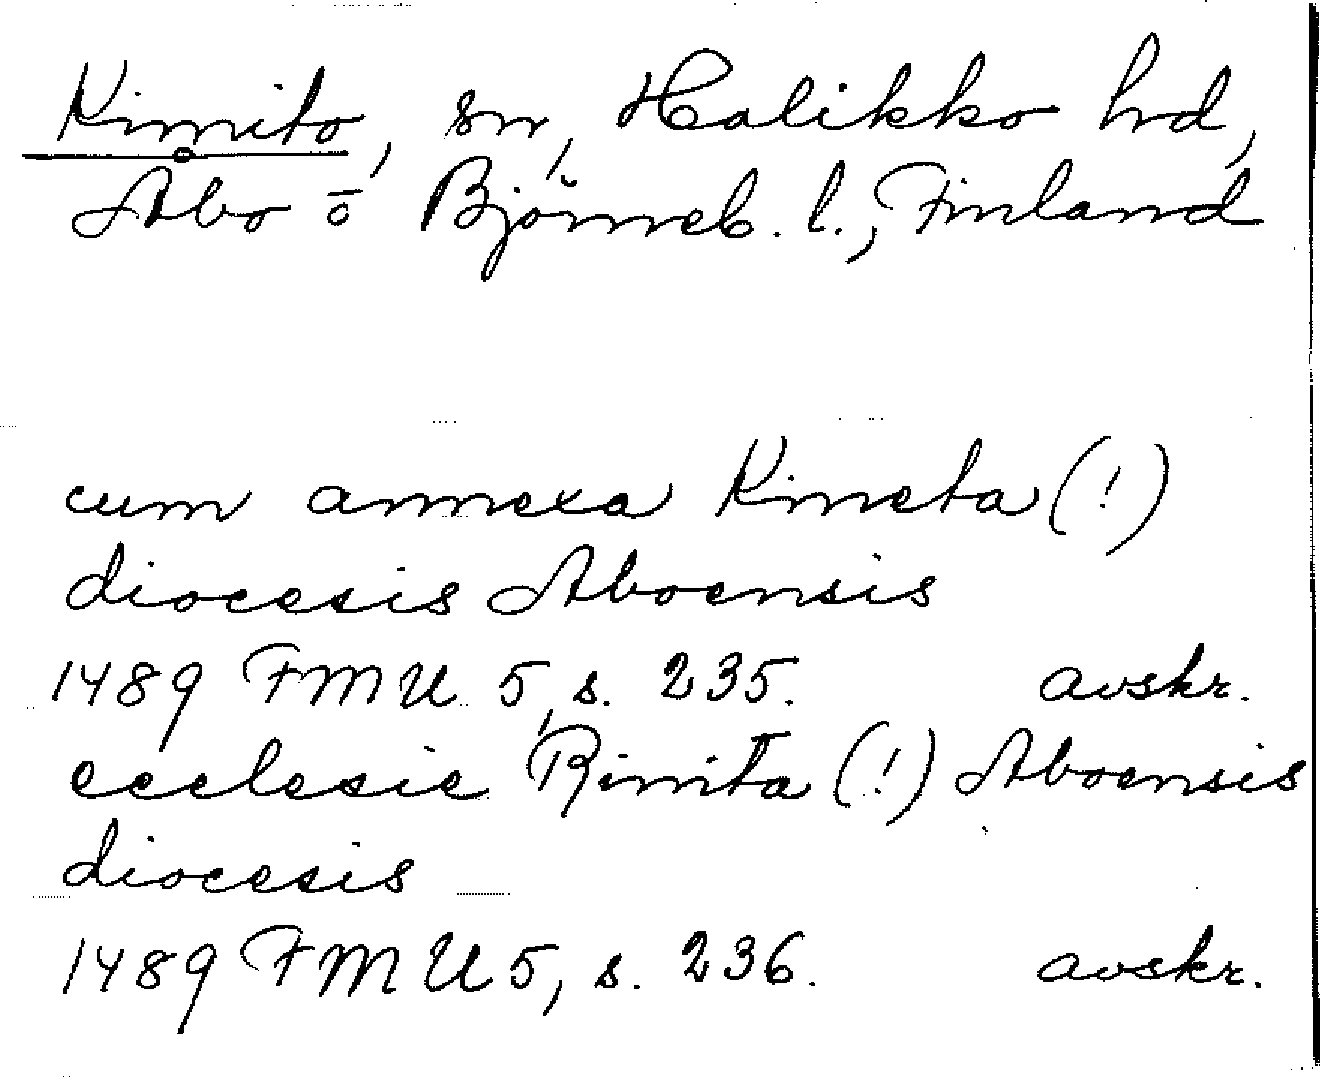 Kimito, sn, Halikko hd,
Åbo o Björneb. l., Finland
cum annexa Kimeta (!)
diocesis Aboensis
1489 FMU 5, s. 235. avskr.
ecclesie Rimita (!) Aboensis
diocesis
1489 FMU 5, s. 236. avskr.